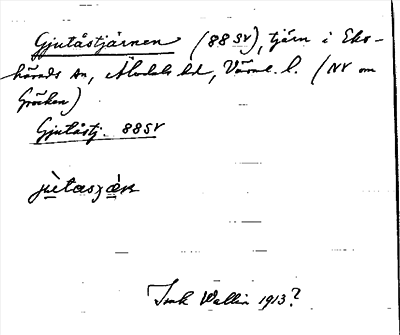 Gjutåstjärnen (88 SV), tjärn i Eks-
härads sn, Älvdals hd, Värml. l. (NV om
Gröcken)
Gjutåstj. 88 SV
Wallin 1913?